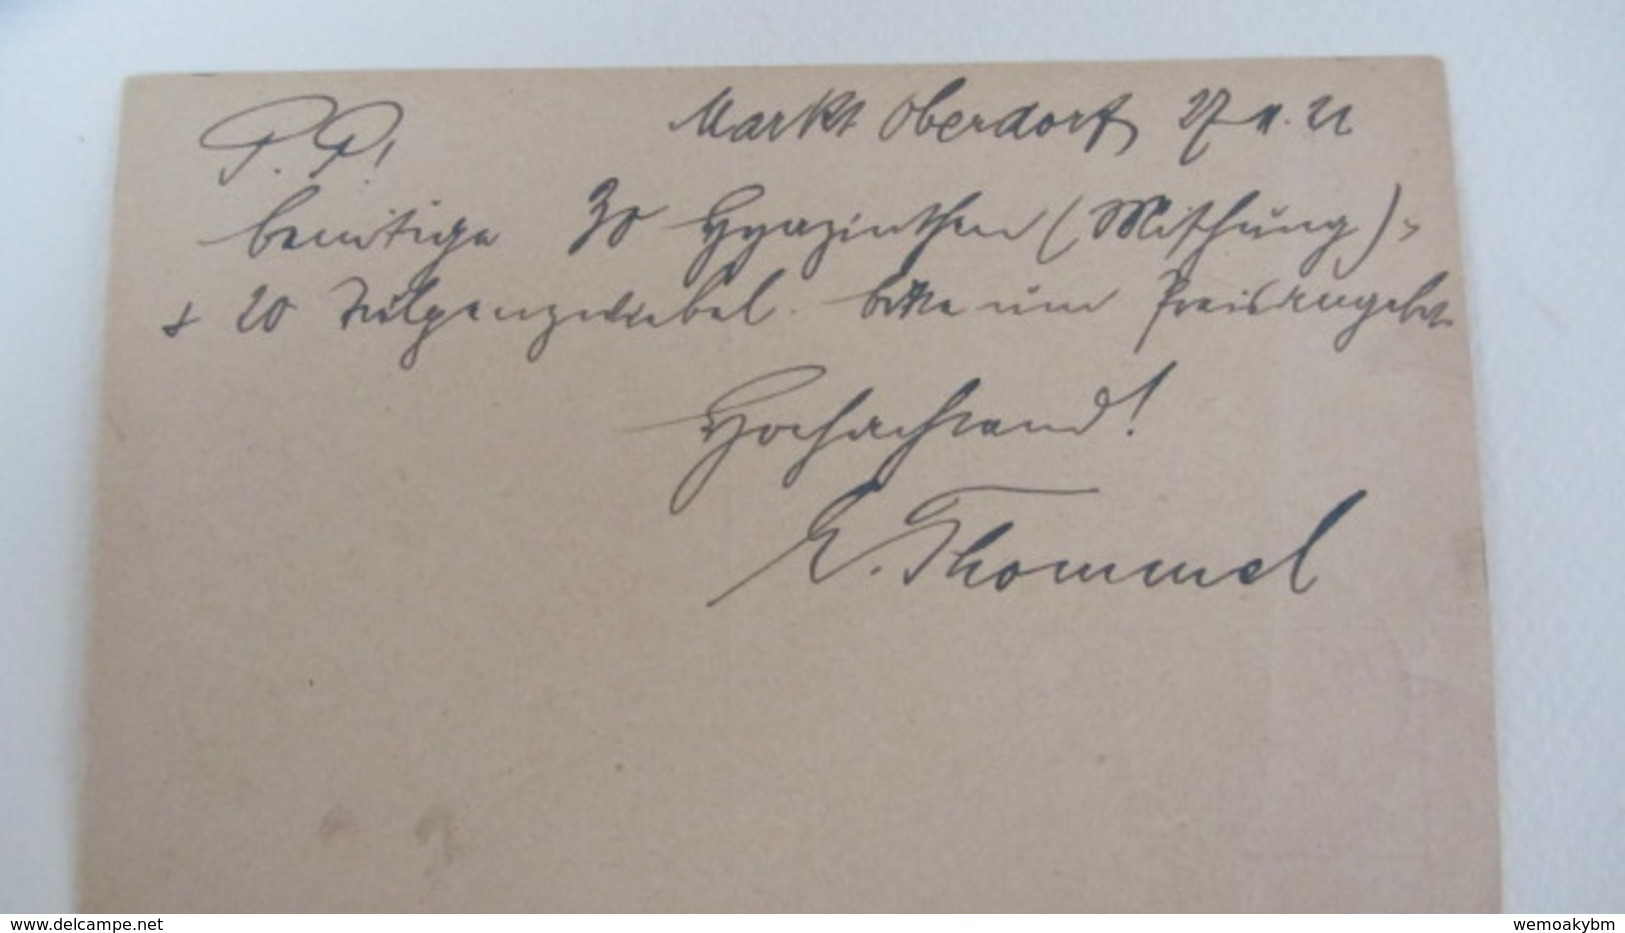 P. P.
Markt Oberdorf, 27 11. 21
benötige 30 Hyazinthen (Mischung)
& 20 Tulpenzwiebel. bitte um Preisangebot
Hochachtend!
E. Thommel
delcampe.net
wemoakybm